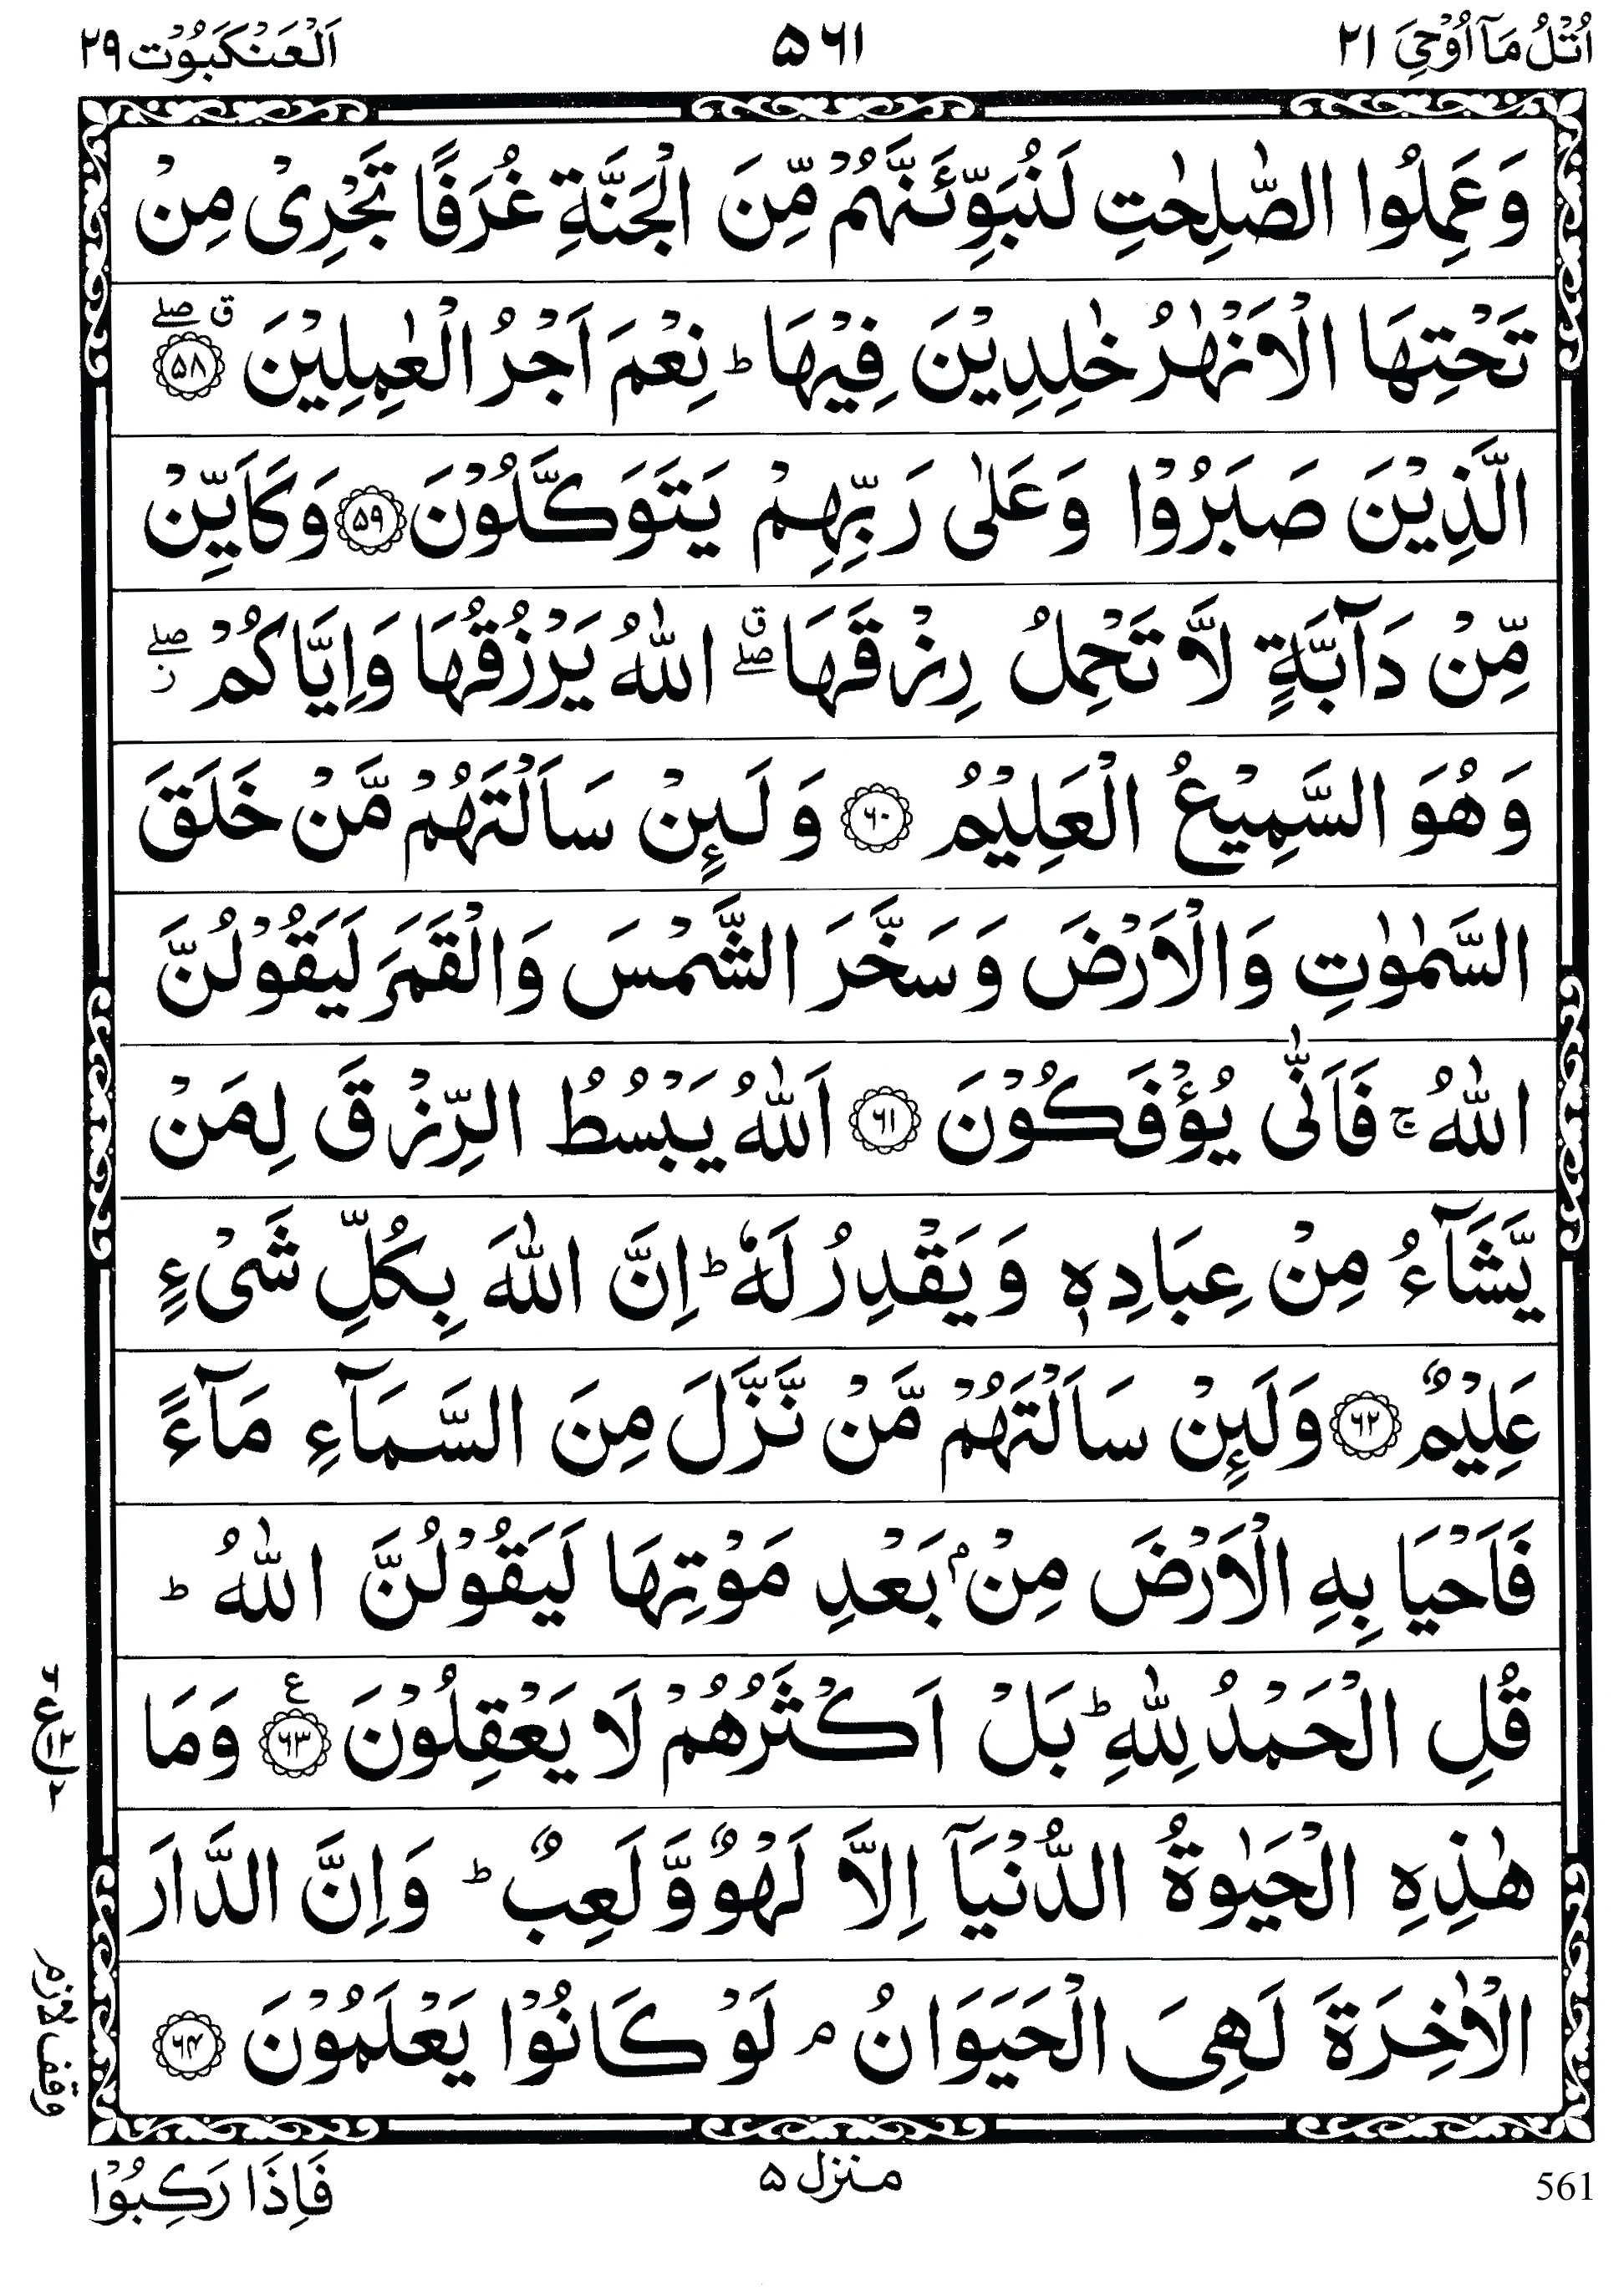 اُتْلُ مَآ اُوْحِيَ ٢١ ٥٦١ اَلْعَنْكَبُوْت ٢٩
وَعَمِلُوا الصّٰلِحٰتِ لَنُبَوِّئَنَّهُمْ مِّنَ الْجَنَّةِ غُرَفًا تَجْرِىْ مِنْ
تَحْتِهَا الْاَنْهٰرُ خٰلِدِيْنَ فِيْهَا ؕ نِعْمَ اَجْرُ الْعٰمِلِيْنَ ﴿۵۸﴾ ق صلے
الَّذِيْنَ صَبَرُوْا وَعَلٰى رَبِّهِمْ يَتَوَكَّلُوْنَ ﴿۵۹﴾ وَكَاَيِّنْ
مِّنْ دَآبَّةٍ لَّا تَحْمِلُ رِزْقَهَا ق صلے اللّٰهُ يَرْزُقُهَا وَاِيَّاكُمْ صلے ز
وَهُوَ السَّمِيْعُ الْعَلِيْمُ ﴿۶۰﴾ وَلَىِٕنْ سَاَلْتَهُمْ مَّنْ خَلَقَ
السَّمٰوٰتِ وَالْاَرْضَ وَسَخَّرَ الشَّمْسَ وَالْقَمَرَ لَيَقُوْلُنَّ
اللّٰهُ ۚ فَاَنّٰى يُؤْفَكُوْنَ ﴿۶۱﴾ اَللّٰهُ يَبْسُطُ الرِّزْقَ لِمَنْ
يَّشَآءُ مِنْ عِبَادِهٖ وَيَقْدِرُ لَهٗ ؕ اِنَّ اللّٰهَ بِكُلِّ شَىْءٍ
عَلِيْمٌ ﴿۶۲﴾ وَلَىِٕنْ سَاَلْتَهُمْ مَّنْ نَّزَّلَ مِنَ السَّمَآءِ مَآءً
فَاَحْيَا بِهِ الْاَرْضَ مِنْۢ بَعْدِ مَوْتِهَا لَيَقُوْلُنَّ اللّٰهُ ؕ
قُلِ الْحَمْدُ لِلّٰهِ ؕ بَلْ اَكْثَرُهُمْ لَا يَعْقِلُوْنَ ﴿۶۳﴾ ع وَمَا
هٰذِهِ الْحَيٰوةُ الدُّنْيَآ اِلَّا لَهْوٌ وَّلَعِبٌ ؕ وَاِنَّ الدَّارَ
الْاٰخِرَةَ لَهِىَ الْحَيَوَانُ ۘ لَوْ كَانُوْا يَعْلَمُوْنَ ﴿۶۴﴾
وقف لازم
فَاِذَا رَكِبُوْا منزل ۵ 561